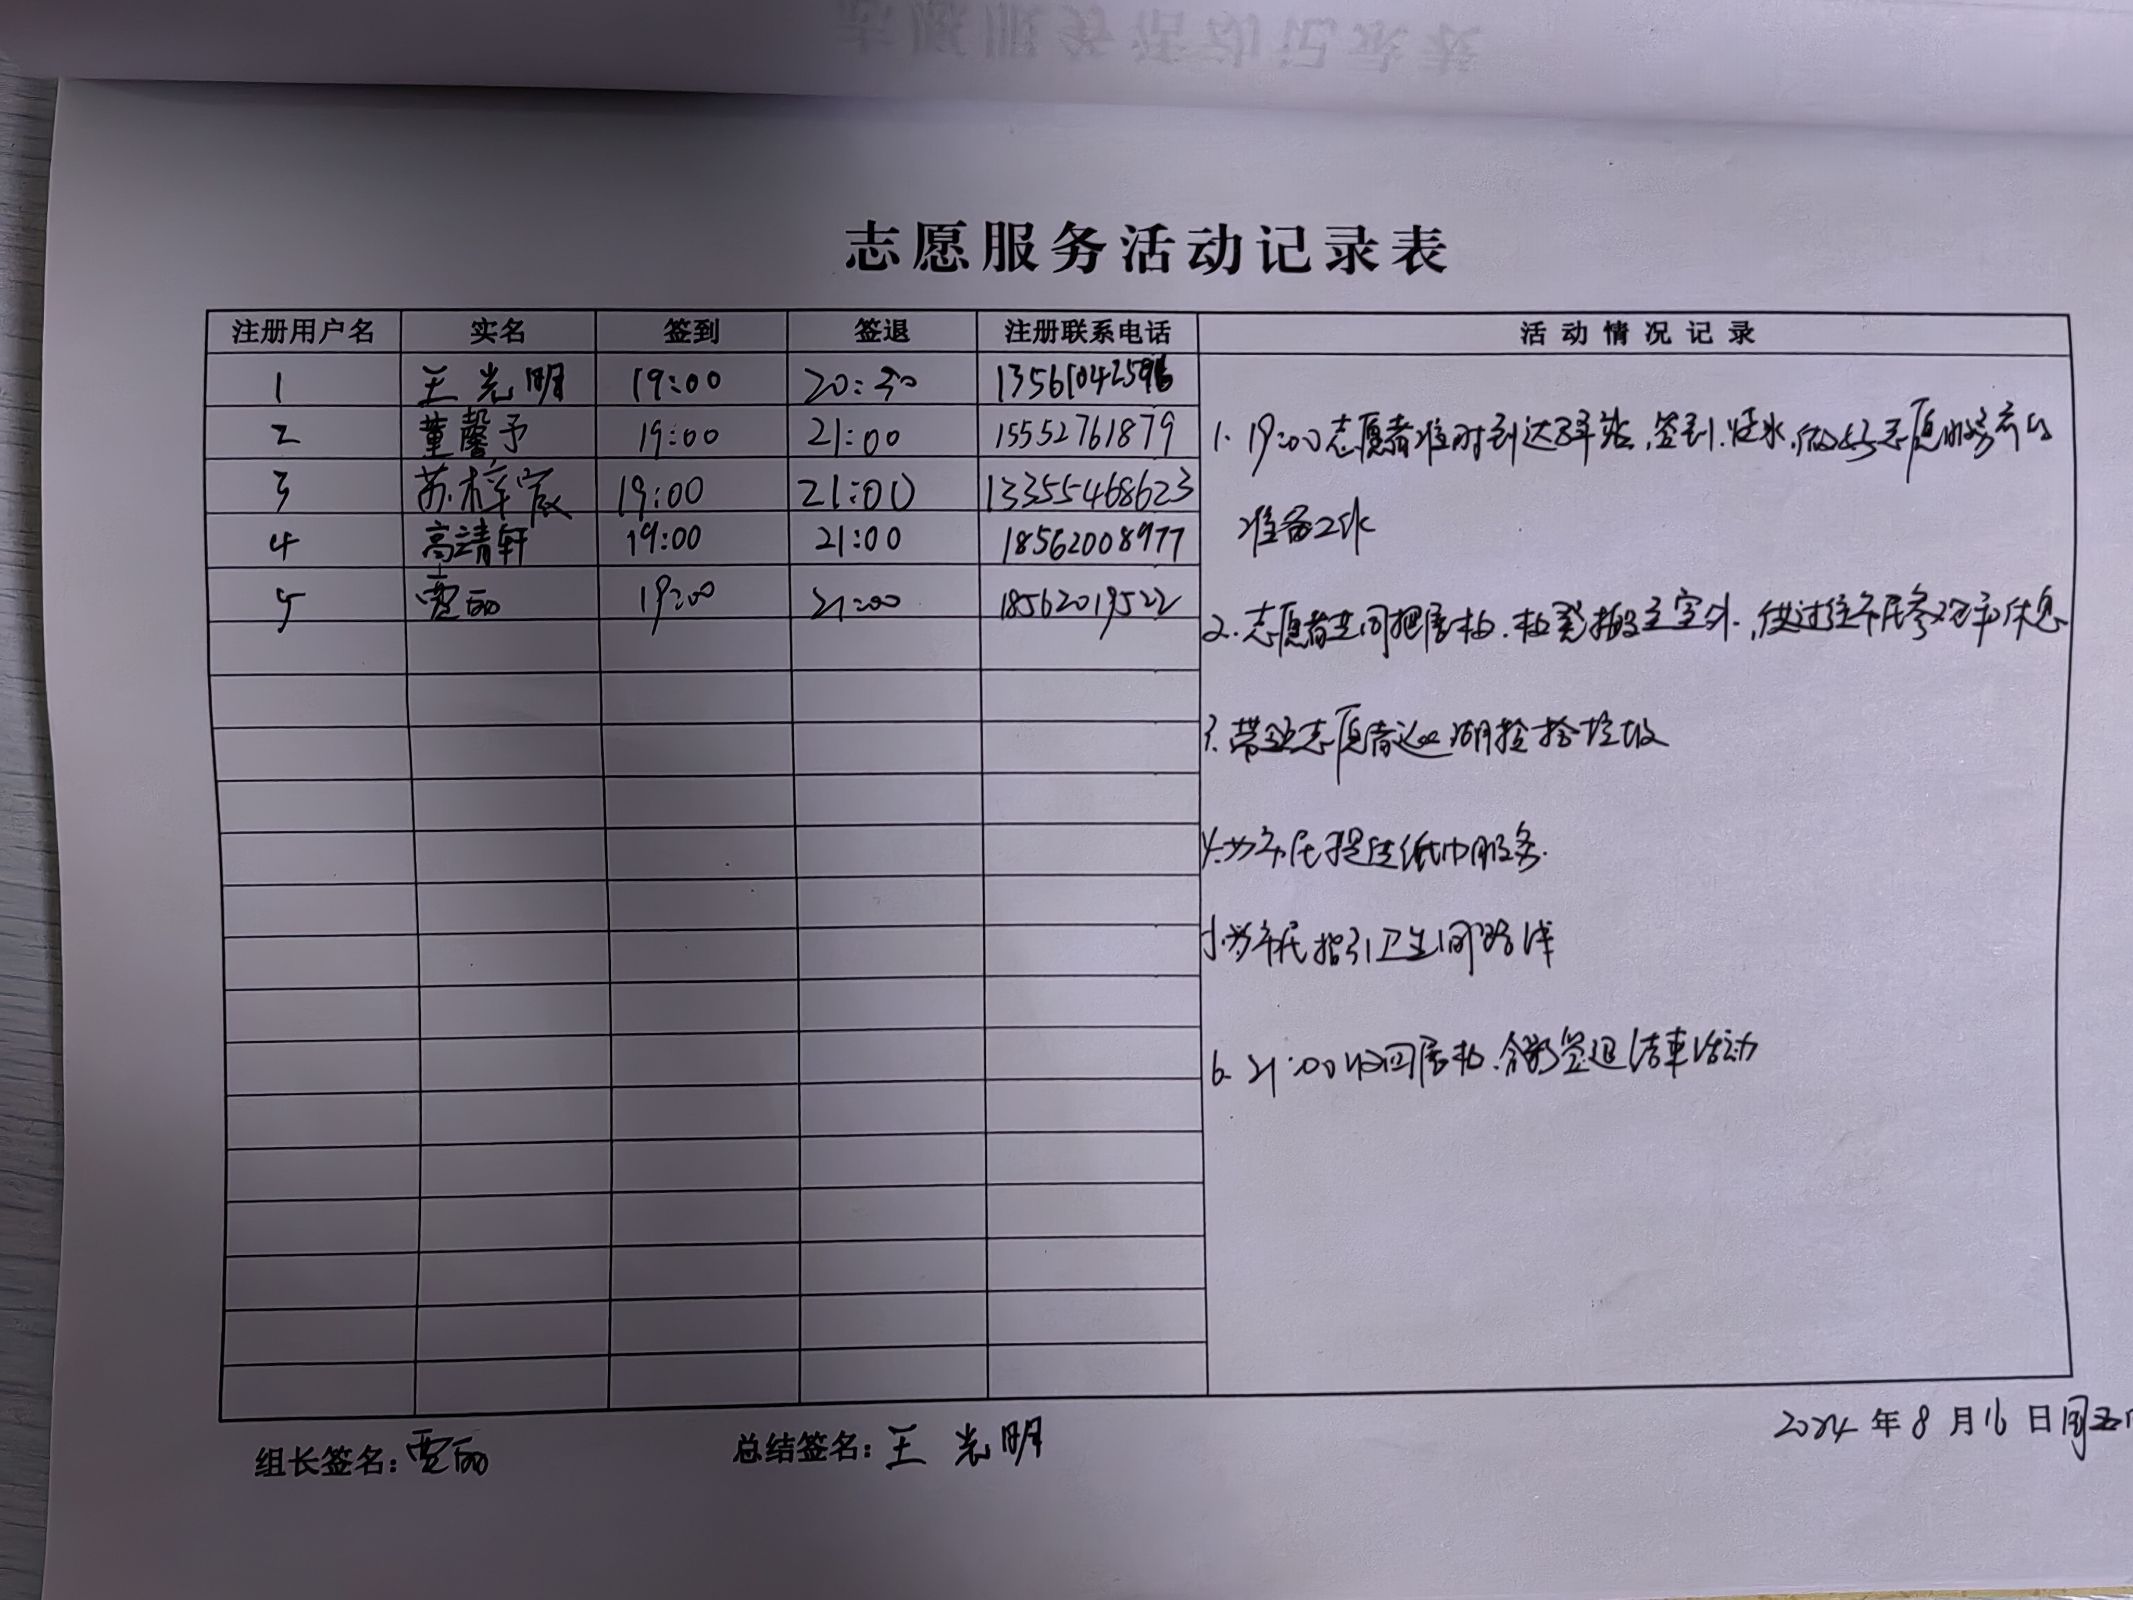 志愿服务活动记录表
注册用户名 实名 签到 签退 注册联系电话 活动情况记录
1 王光明 19:00 20:30
2 董馨予 19:00 21:00 15552761879
3 苏梓宸 19:00 21:00 13355468623
4 高靖轩 19:00 21:00 18562008977
5 贾丽 19:00 21:00 18562019522
1. 19:00志愿者准时到达 站,签到.烧水,做好志愿服务前的
准备工作
2.志愿者共同把展板.板凳搬至室外.,供过往市民参观和休息
3.带领志愿者边 湖捡拾垃圾
4.为市民提供纸巾服务.
5.为市民指引卫生间路线
6. 21:00收回展板.全部签退结束活动
组长签名:贾丽 总结签名:王光明
2024年8月16日周五